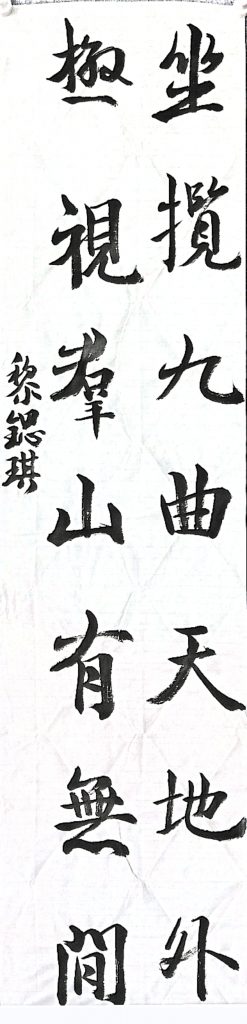 坐攬九曲天地外
極視羣山有無間
黎鍶琪